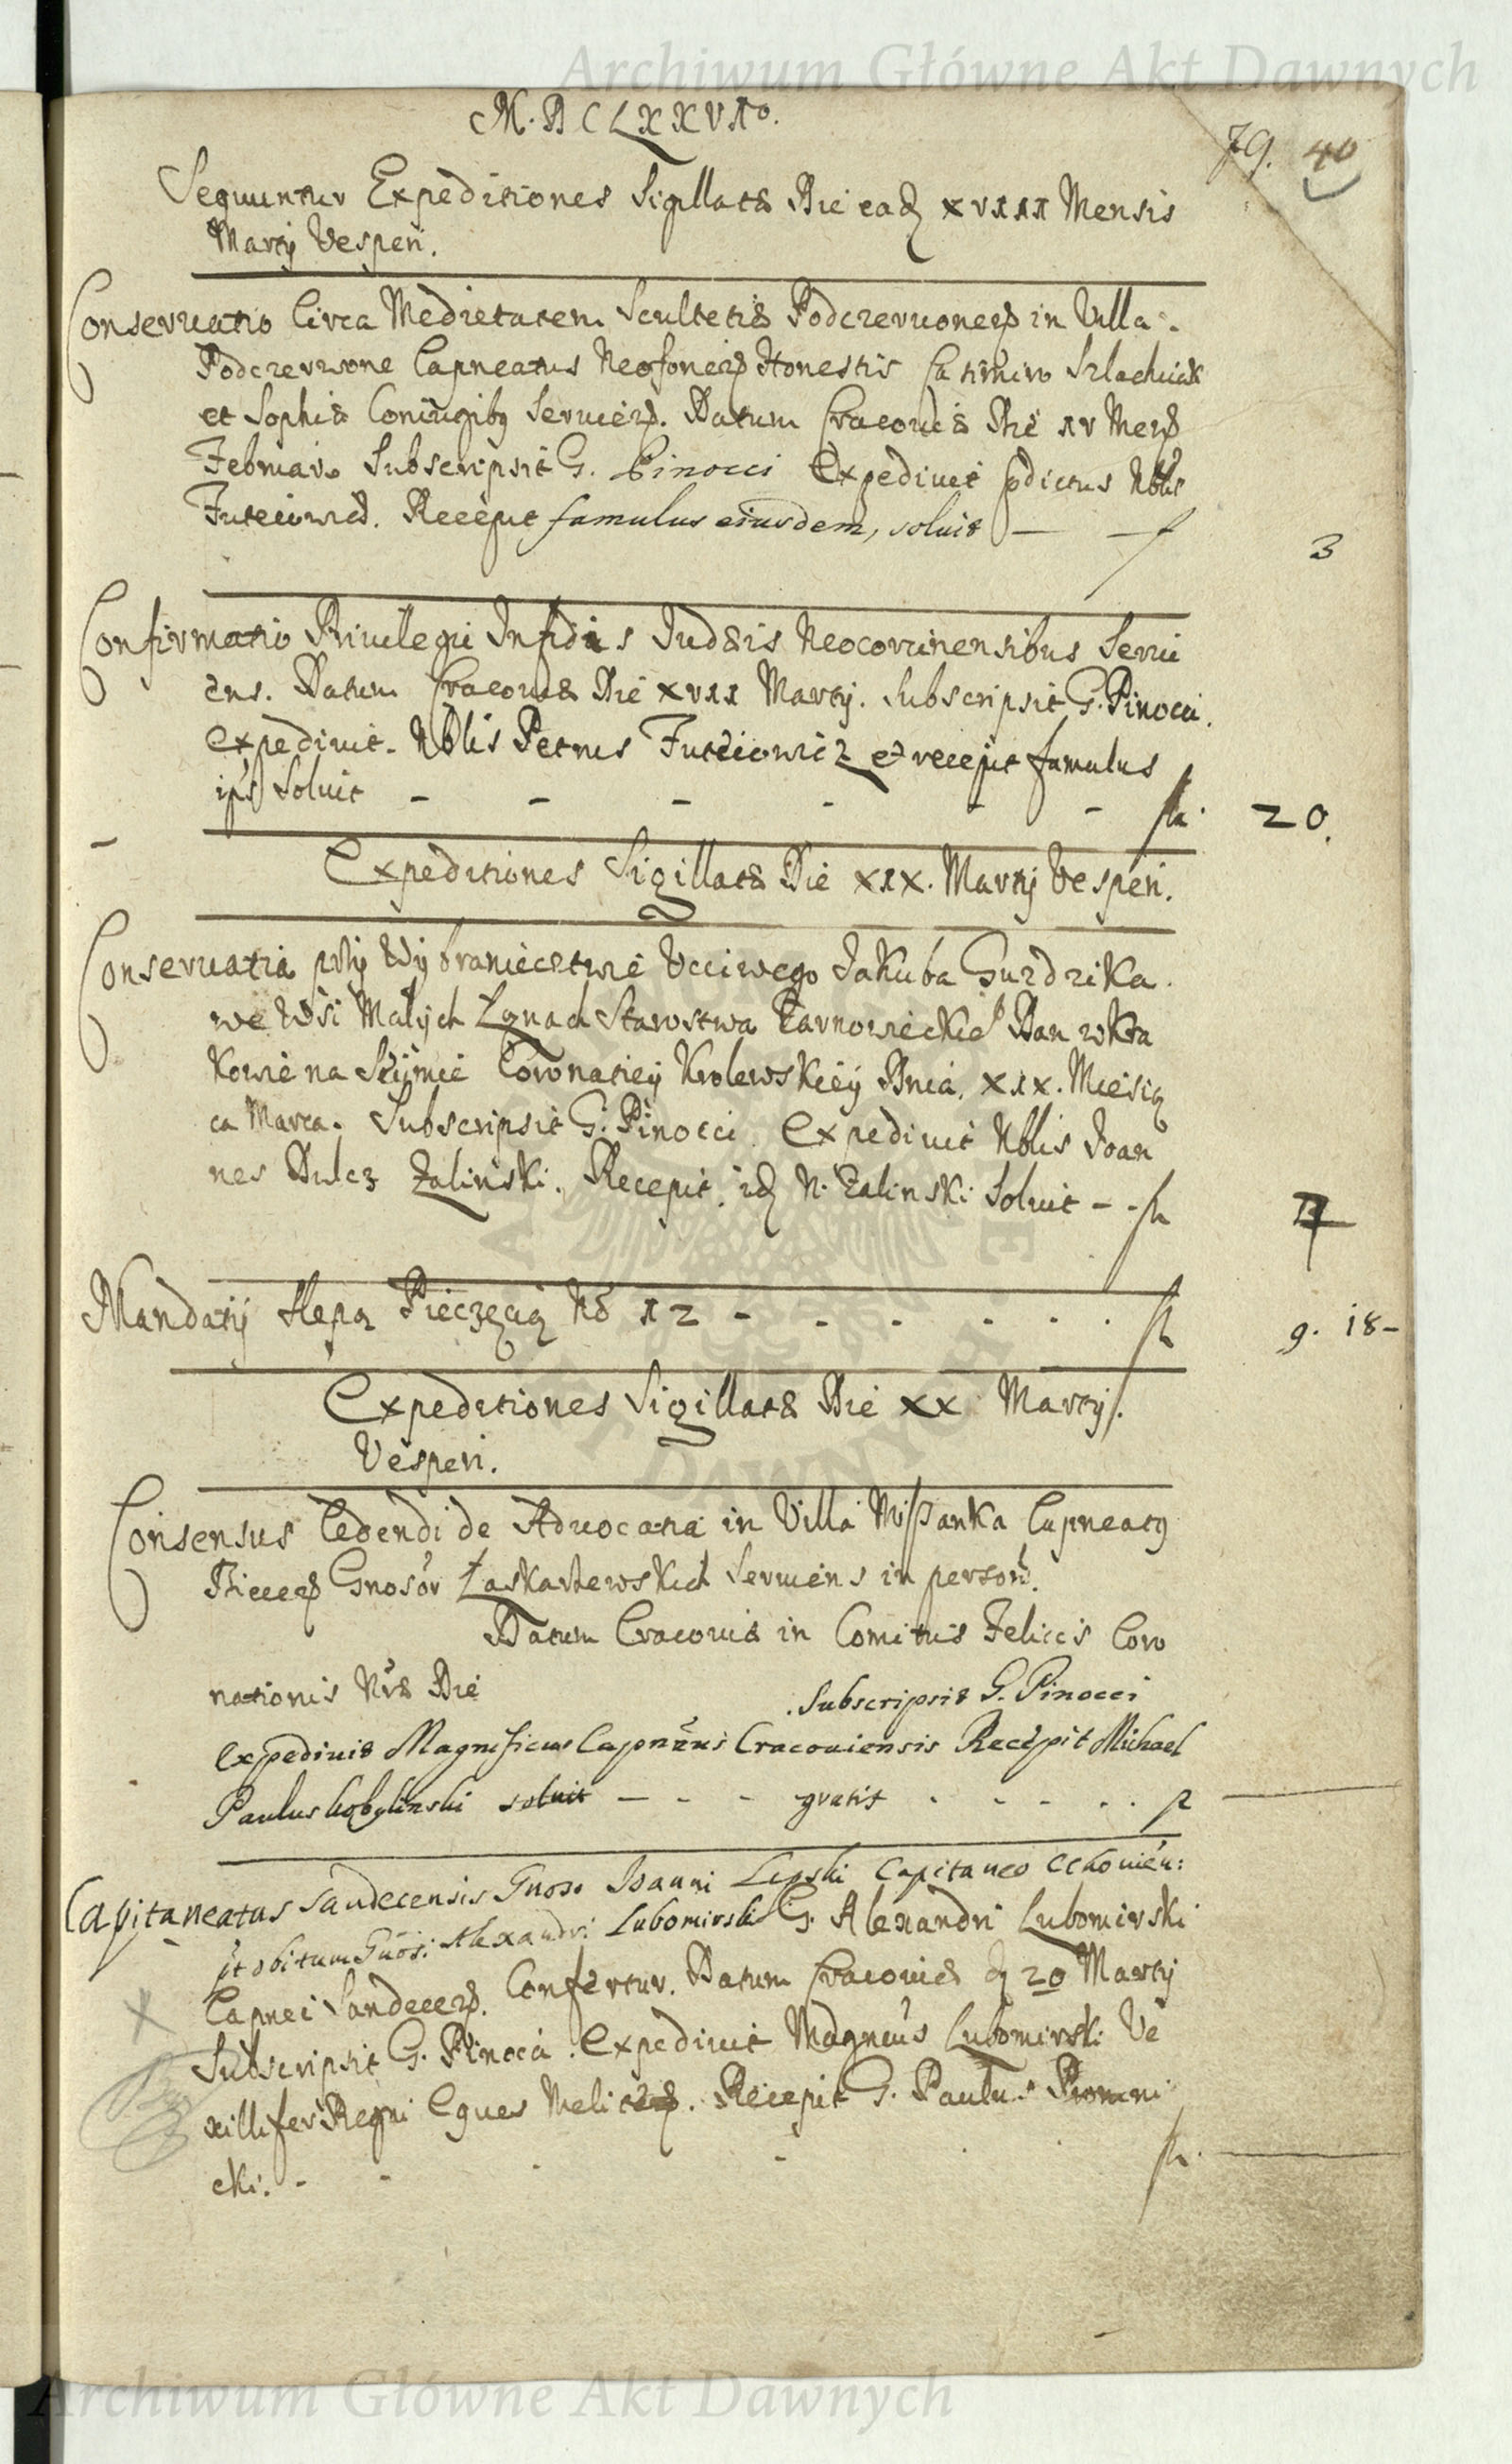 Archiwum Główne Akt Dawnych
M.DCLXXVIo.
79. 40
Sequuntur Expeditiones Sigillatæ Die eadē XVIII Mensis
Martij Vesperi.
Conseruatio Circa Medietatem Scultetiæ Podczerwonen in Villa
Podczerwone Capneatus Neoforien Honestis Casimiro Szlachciak
et Sophiæ Coniugibꝰ Seruien. Datum Cracouiæ Die IV Men
Februario Subscripsit G. Pinocci Expediuit pdictus Nblis
Futeiowicz. Recepit famulus eiusdem, soluit — — f 3
Confirmatio Priuilegii Infidis Judæis Neocorcinensibus Serui
ens. Datum Cracouiæ Die XVII Martij. Subscripsit G. Pinocci.
expediuit. Nblis Petrus Futeiowicz et recepit famulus
ips Soluit - - - - - - fl. 20.
Expeditiones Sigillatæ Die XIX. Martij Vesperi.
Conseruatia przy Wybraniecztwie Vcciwego Jakuba Gurdzika
we Wsi Małych Lgnach Starostwa Tarnowieckie Dan w Kra
kowie na Seijmie Coronatiey Krolewskiey Dnia. XIX. Miesią
ca Marca. Subscripsit G. Pinocci. Expediuit Nblis Joan
nes Dulcz Zalinski. Recepit idē N. Zalinski Soluit - - fl 7
Mandatij Slepą Pieczęcią No 12 - - - - - - fl 9. 18-
Expeditiones Sigillatæ Die XX Martij.
Vesperi.
Consensus Cedendi de Aduocatia in Villa Miſzanka Capneatꝰ
Biecen Gnosōr Łaskarzewskich Seruiens in person.
Datum Cracouiæ in Comitiis Felicis Coro
nationis Nræ Die Subscripsit G. Pinocci
expediuit Magnificus Capneus Cracouiensis Recepit Michael
Paulus Kobylinski soluit — - - gratis - - - - - fl —
Capitaneatus Sandecensis Gnoso Ioanni Lipski Capitaneo Cchouien:
pt obitum Gnosi Alexandri Lubomirski G. Alexandri Lubomirski
Capnei Sandecen. Confertur. Datum Cracouiæ d 20 Martij
Subscripsit G. Pinocci. Expediuit Magncus Lubomirski Ve
xillifer Regni Eques Melit. Recepit G. Paulus Promni
cki. - - - - fl. —
Archiwum Główne Akt Dawnych